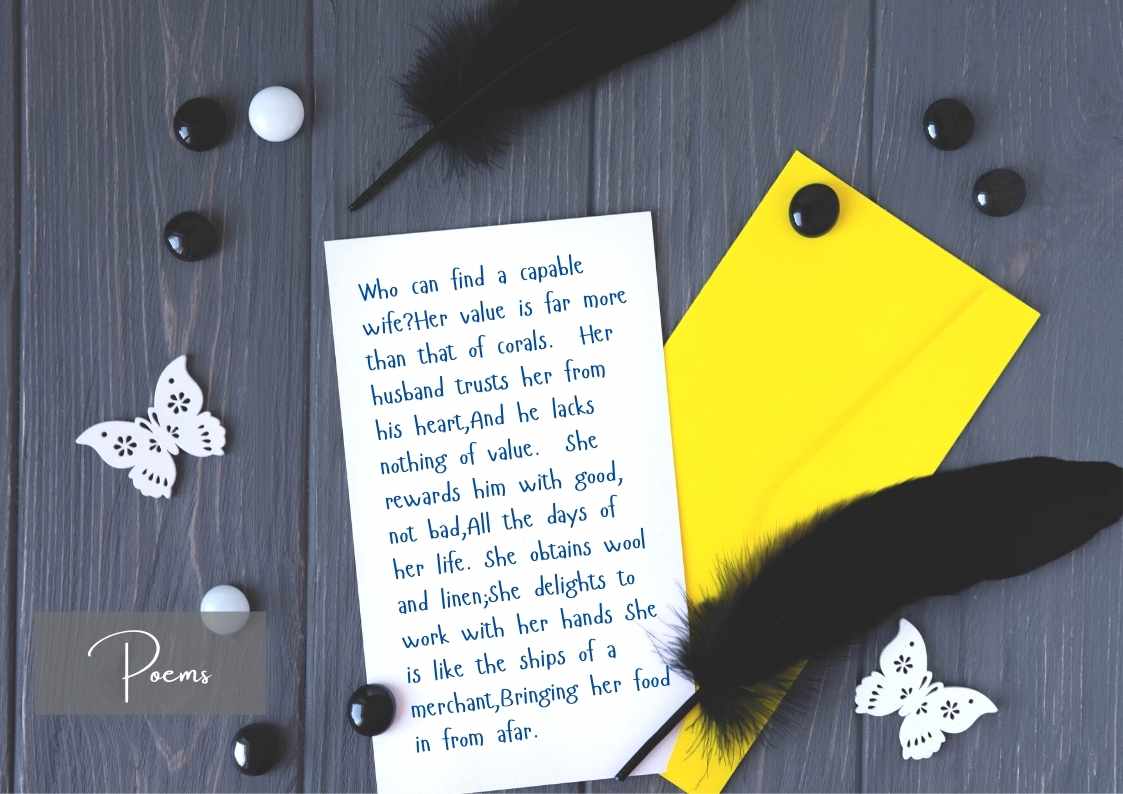 Who can find a capable
wife?Her value is far more
than that of corals.  Her
husband trusts her from
his heart,And he lacks
nothing of value.  She
rewards him with good,
not bad,All the days of
her life. She obtains wool
and linen;She delights to
work with her hands She
is like the ships of a
merchant,Bringing her food
in from afar.
Poems